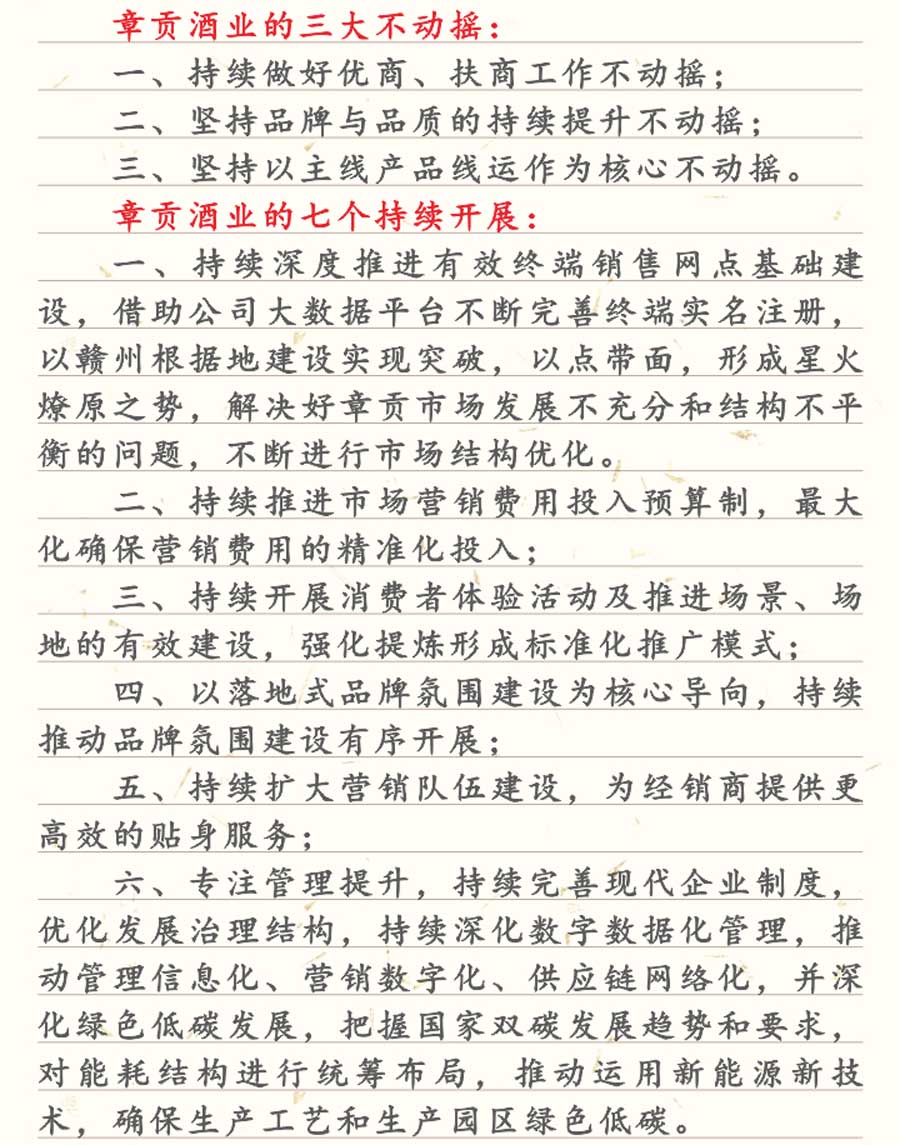 章贡酒业的三大不动摇：
一、持续做好优商、扶商工作不动摇；
二、坚持品牌与品质的持续提升不动摇；
三、坚持以主线产品线运作为核心不动摇。
章贡酒业的七个持续开展：
一、持续深度推进有效终端销售网点基础建
设，借助公司大数据平台不断完善终端实名注册，
以赣州根据地建设实现突破，以点带面，形成星火
燎原之势，解决好章贡市场发展不充分和结构不平
衡的问题，不断进行市场结构优化。
二、持续推进市场营销费用投入预算制，最大
化确保营销费用的精准化投入；
三、持续开展消费者体验活动及推进场景、场
地的有效建设，强化提炼形成标准化推广模式；
四、以落地式品牌氛围建设为核心导向，持续
推动品牌氛围建设有序开展；
五、持续扩大营销队伍建设，为经销商提供更
高效的贴身服务；
六、专注管理提升，持续完善现代企业制度，
优化发展治理结构，持续深化数字数据化管理，推
动管理信息化、营销数字化、供应链网络化，并深
化绿色低碳发展，把握国家双碳发展趋势和要求，
对能耗结构进行统筹布局，推动运用新能源新技
术，确保生产工艺和生产园区绿色低碳。